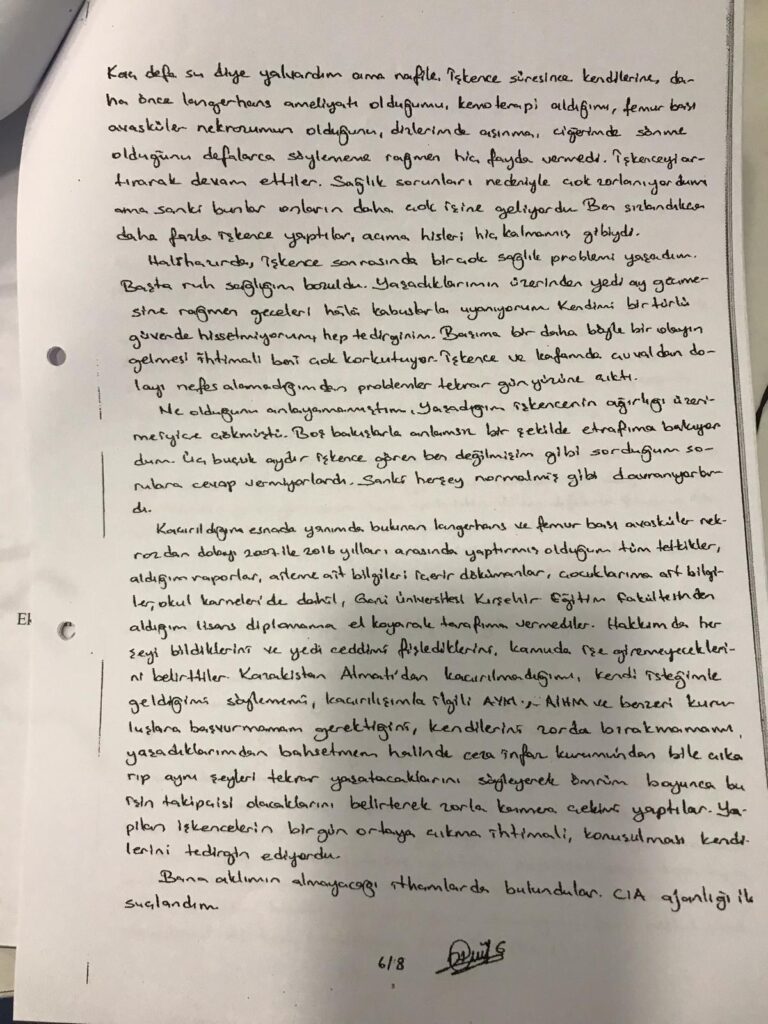 Kaç defa su diye yalvardım ama nafile. İşkence süresince kendilerine, da-
ha önce langerhans ameliyatı olduğumu, kemoterapi aldığımı, femur başı
avasküler nekrozumun olduğunu, dizlerimde aşınma, ciğerimde sönme
olduğunu defalarca söylememe rağmen hiç fayda vermedi. İşkenceyi ar-
tırarak devam ettiler. Sağlık sorunları nedeniyle çok zorlanıyordum
ama sanki bunlar onların daha çok işine geliyordu. Ben sızlandıkça
daha fazla işkence yaptılar, acıma hisleri hiç kalmamış gibiydi.
Halihazırda, işkence sonrasında birçok sağlık problemi yaşadım.
Başta ruh sağlığım bozuldu. Yaşadıklarımın üzerinden yedi ay geçme-
sine rağmen geceleri hâlâ kabuslarla uyanıyorum. Kendimi bir türlü
güvende hissetmiyorum, hep tedirginim. Başıma bir daha böyle bir olayın
gelmesi ihtimali beni çok korkutuyor. İşkence ve kafamda çuvaldan do-
layı nefes alamadığımdan problemler tekrar gün yüzüne çıktı.
Ne olduğunu anlayamamıştım. Yaşadığım işkencenin ağırlığı üzeri-
me iyice çökmüştü. Boş bakışlarla anlamsız bir şekilde etrafıma bakıyor
dum. Üç buçuk aydır işkence gören ben değilmişim gibi sorduğum so-
rulara cevap vermiyorlardı. Sanki herşey normalmiş gibi davranıyorlar-
dı.
Kaçırıldığım esnada yanımda bulunan langerhans ve femur başı avasküler nek-
rozdan dolayı 2007 ile 2016 yılları arasında yaptırmış olduğum tüm tetkikler,
aldığım raporlar, aileme ait bilgileri içerir dökümanlar, çocuklarıma ait bilgi-
ler, okul karneleri de dahil, Gazi Üniversitesi Kırşehir Eğitim Fakültesinden
aldığım lisans diplomama el koyarak tarafıma vermediler. Hakkımda her
şeyi bildiklerini ve yedi ceddimi fişlediklerini, kamuda işe giremeyecekleri-
ni belirttiler. Kazakistan Almatı'dan kaçırılmadığımı, kendi isteğimle
geldiğimi söylememi, kaçırılışımla ilgili AYM, AİHM ve benzeri kuru-
luşlara başvurmamam gerektiğini, kendilerini zorda bırakmamamı,
yaşadıklarımdan bahsetmem halinde ceza infaz kurumundan bile çıka
rıp aynı şeyleri tekrar yaşatacaklarını söyleyerek ömrüm boyunca bu
işin takipçisi olacaklarını belirterek zorla kamera çekimi yaptılar. Ya-
pılan işkencelerin bir gün ortaya çıkma ihtimali, konuşulması kendi-
lerini tedirgin ediyordu.
Bana aklımın almayacağı ithamlarda bulundular. CIA ajanlığı ile
suçlandım.
6/8